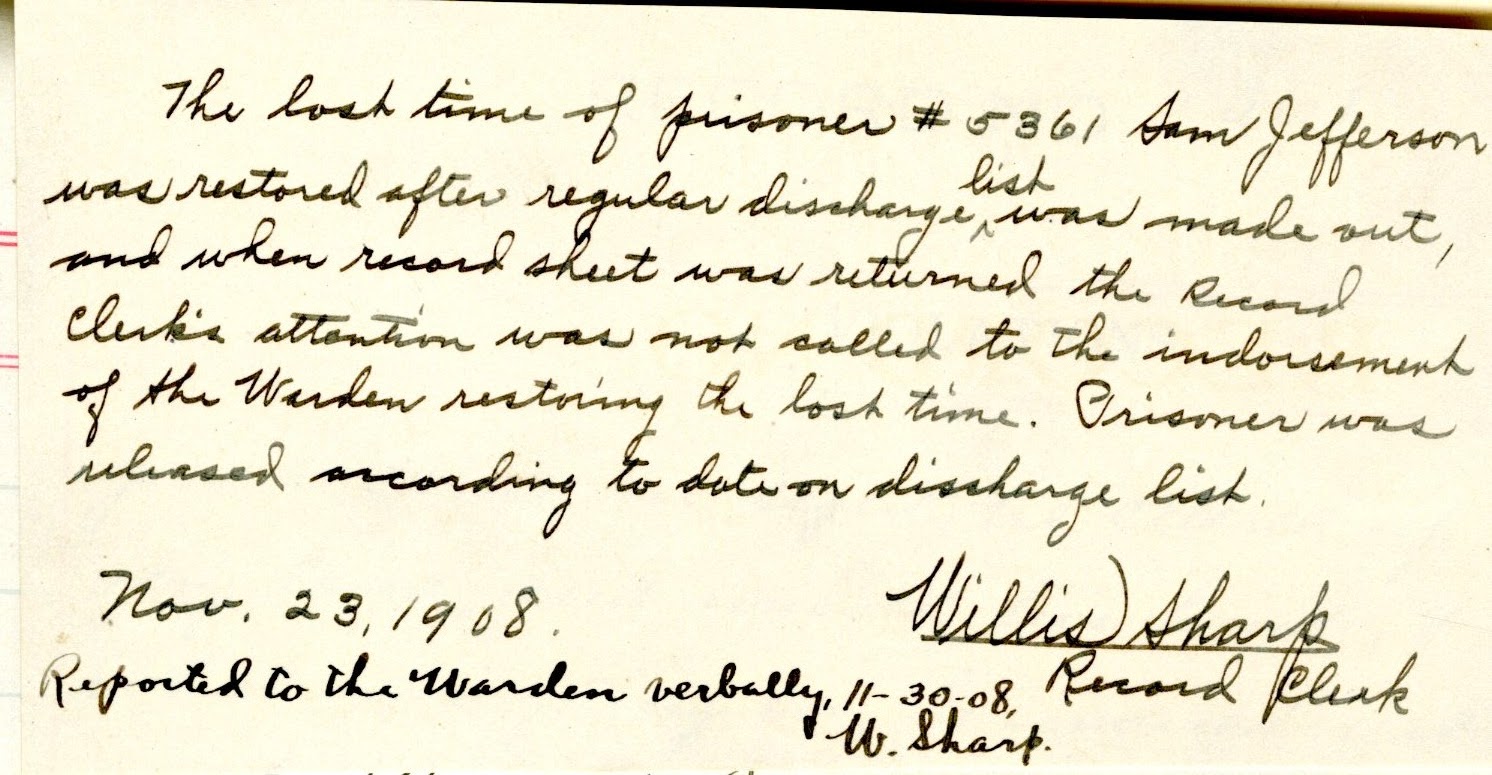 The lost time of prisoner # 5361 Sam Jefferson
was restored after regular discharge list was made out,
and when record sheet was returned the Record
Clerk's attention was not called to the indorsement
of the Warden restoring the lost time. Prisoner was
released according to date on discharge list.
Nov. 23, 1908.
Willis Sharp
Record Clerk
Reported to the Warden verbally, 11-30-08,
W. Sharp.